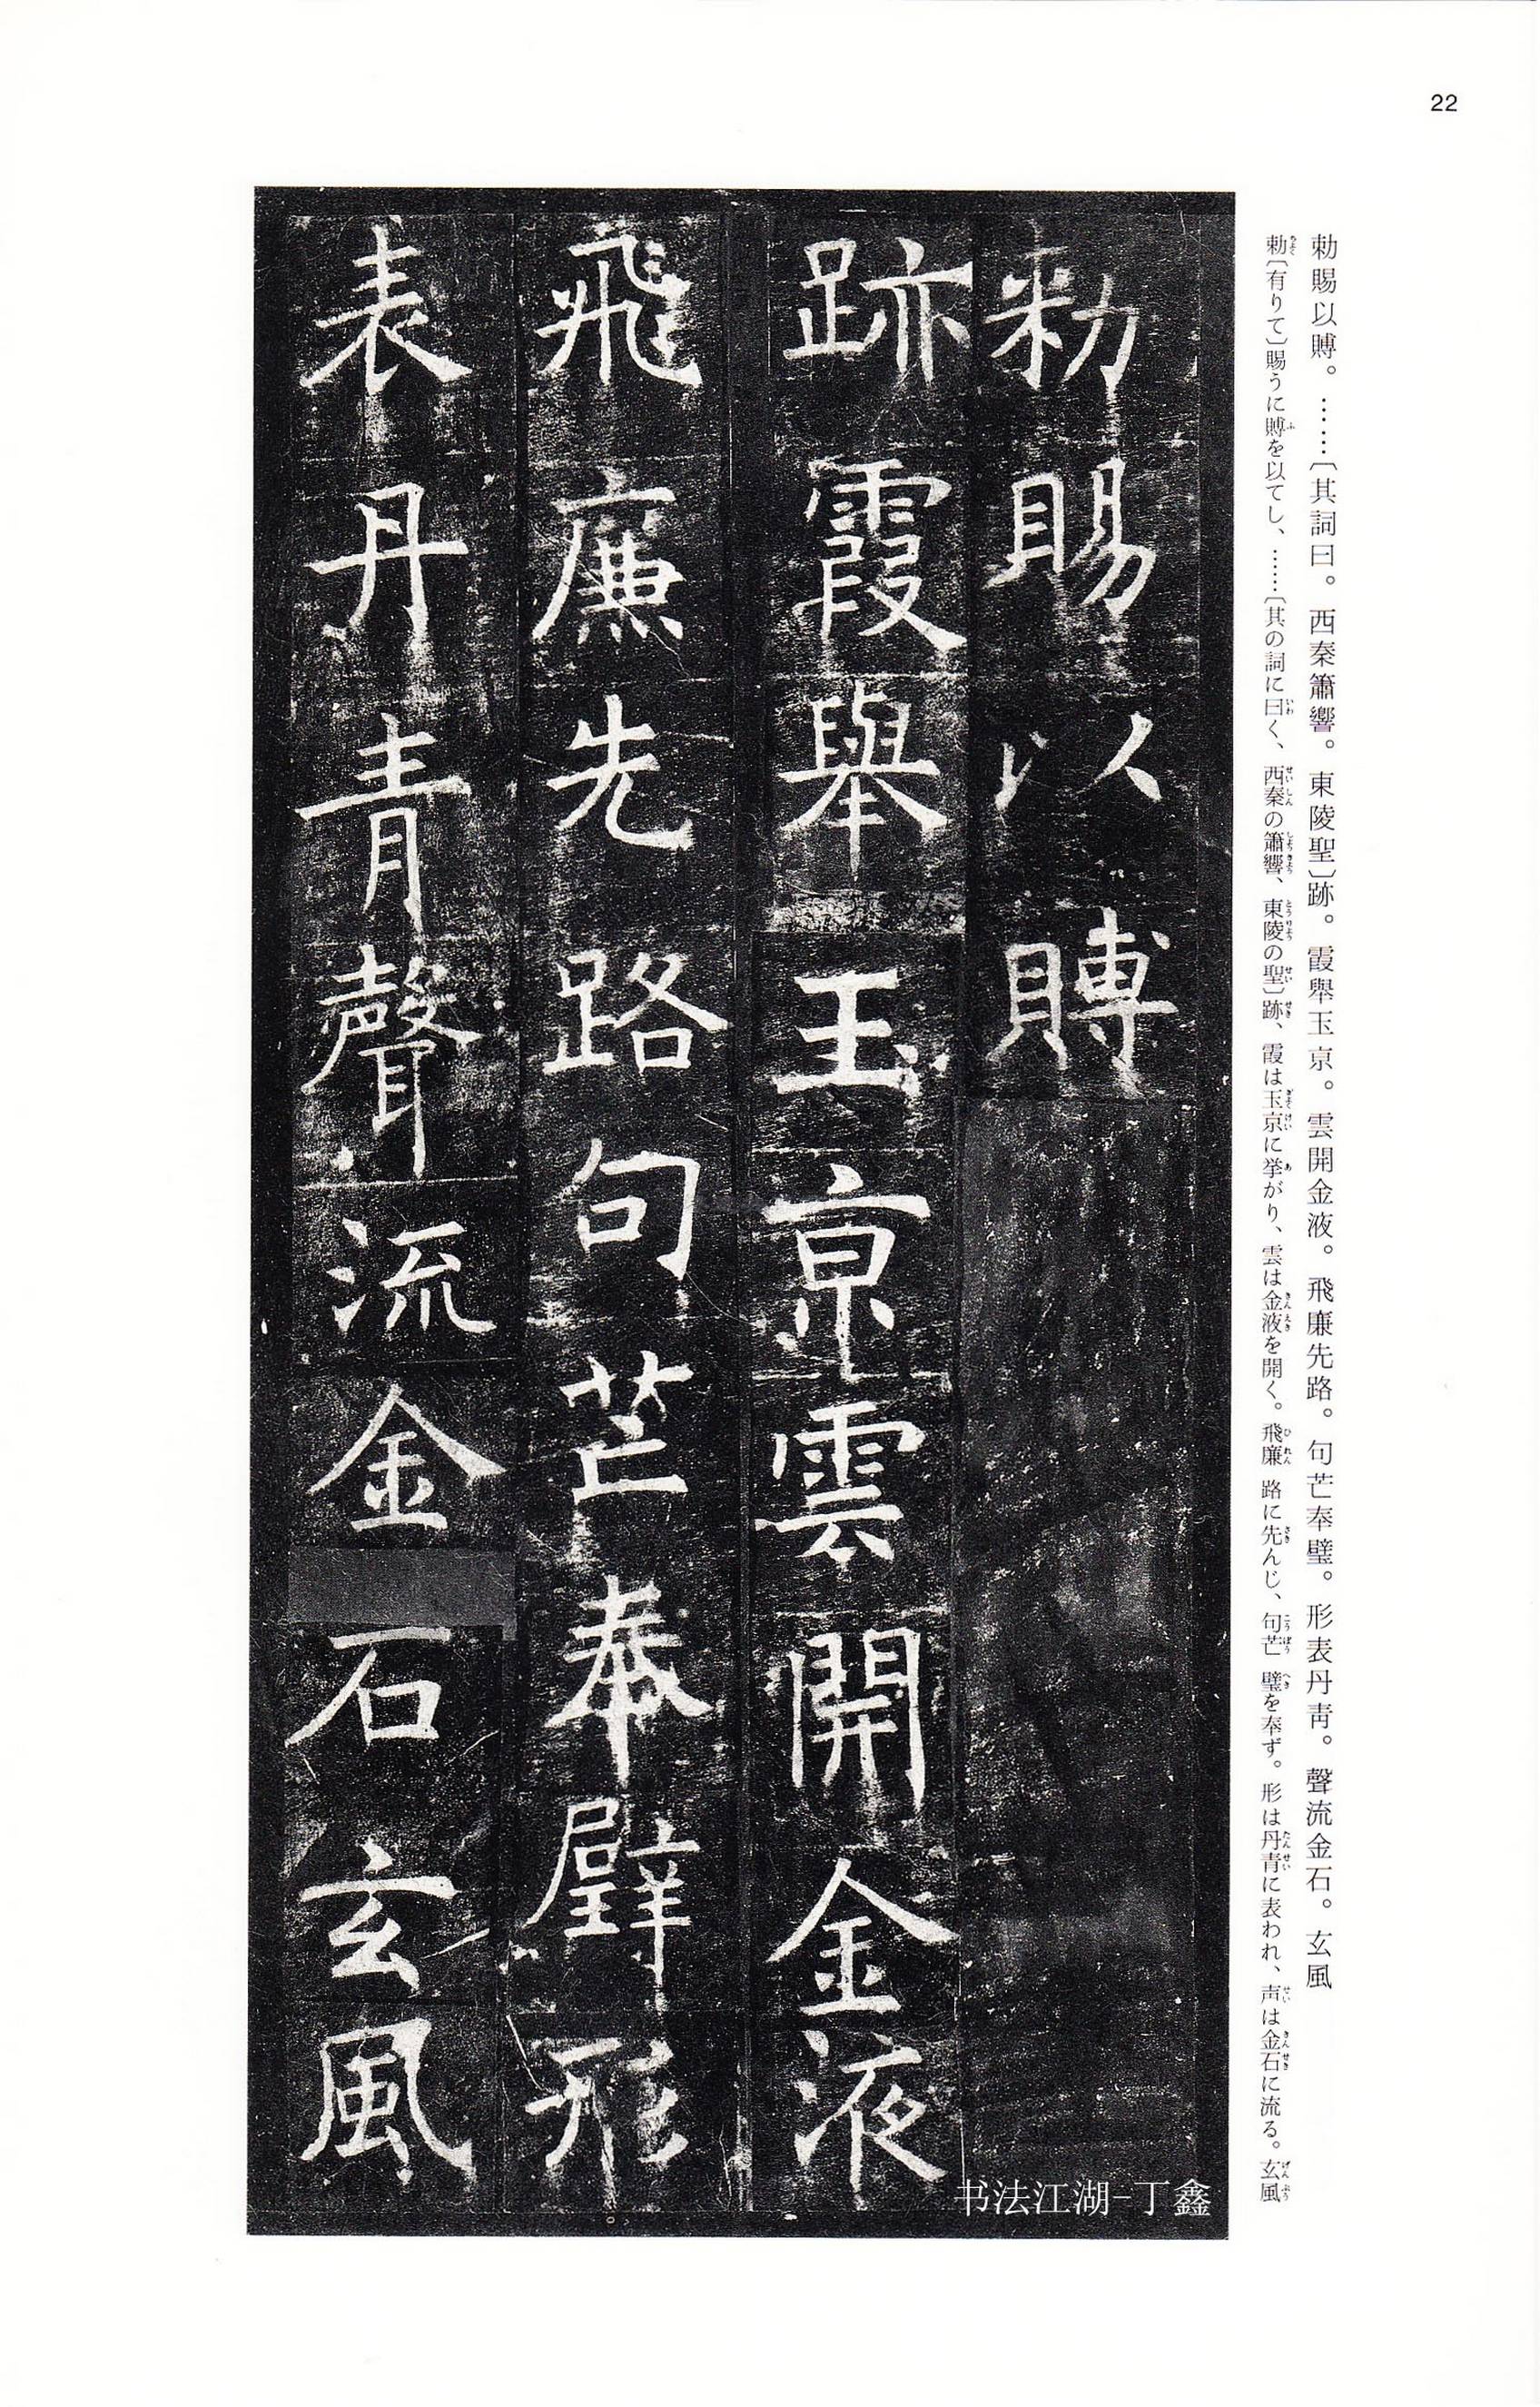 22
勅賜以賻。……〔其詞曰。西秦簫響。東陵聖〕跡。霞舉玉京。雲開金液。飛廉先路。句芒奉璧。形表丹靑。聲流金石。玄風
勅〔有りて〕賜うに賻を以てし、……〔其の詞に曰く、西秦の簫響、東陵の聖〕跡、霞は玉京に挙がり、雲は金液を開く。飛廉 路に先んじ、句芒 璧を奉ず。形は丹青に表われ、声は金石に流る。玄風
勑賜以賻
跡霞舉玉京雲開金液
飛廉先路句芒奉璧形
表丹青聲流金石玄風
书法江湖-丁鑫